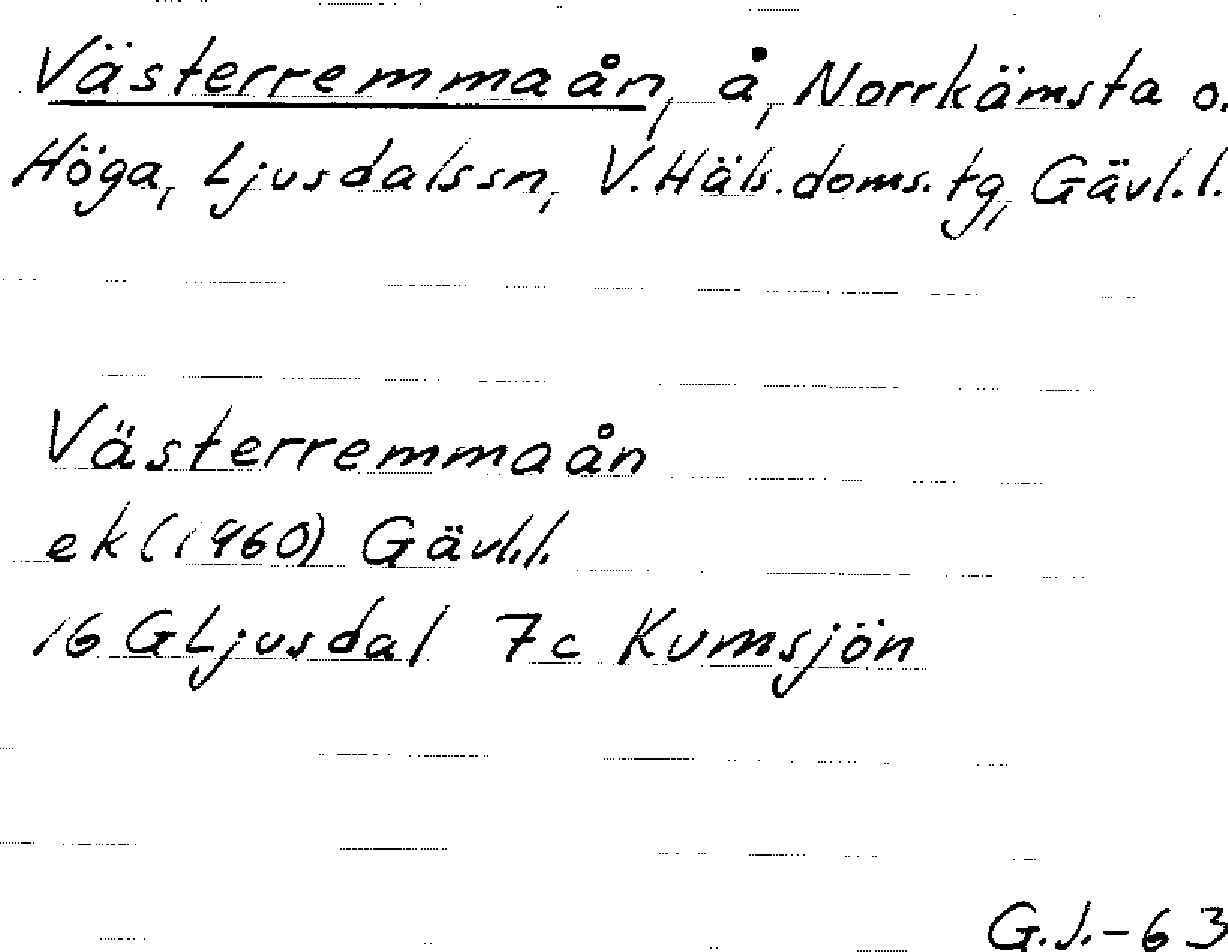 Västerremmaån, å, Norrkämsta o.
Höga, Ljusdalssn, V. Häls. doms. tg, Gävl. l.
Västerremmaån
ek (1960) Gävl. l.
16 G Ljusdal 7c Kumsjön
G.J.-63